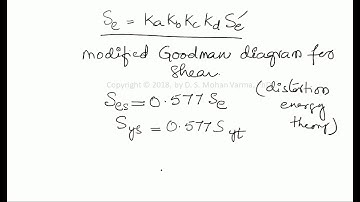 Se = Ka Kb Kc Kd Se′
modified Goodman diagram for
shear.
Copyright © 2018, by D. S. Mohan Varma
Ses = 0.577 Se (distortion
energy
Sys = 0.577 Syt theory)